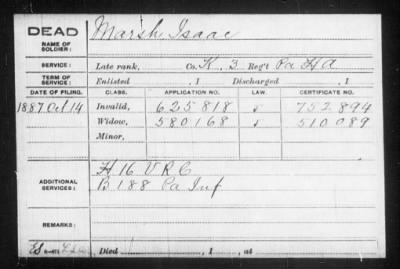 DEAD
NAME OF SOLDIER: Marsh, Isaac
SERVICE: Late rank, Co. K. 3 Reg't Pa H A
TERM OF SERVICE: Enlisted , 1 Discharged , 1
DATE OF FILING. CLASS. APPLICATION NO. LAW. CERTIFICATE NO.
1887 Oct 14 Invalid, 625818 752894
Widow, 580168 510089
Minor,
ADDITIONAL SERVICES: H 16 V R C
B 188 Pa Inf
REMARKS:
Died , 1 , at